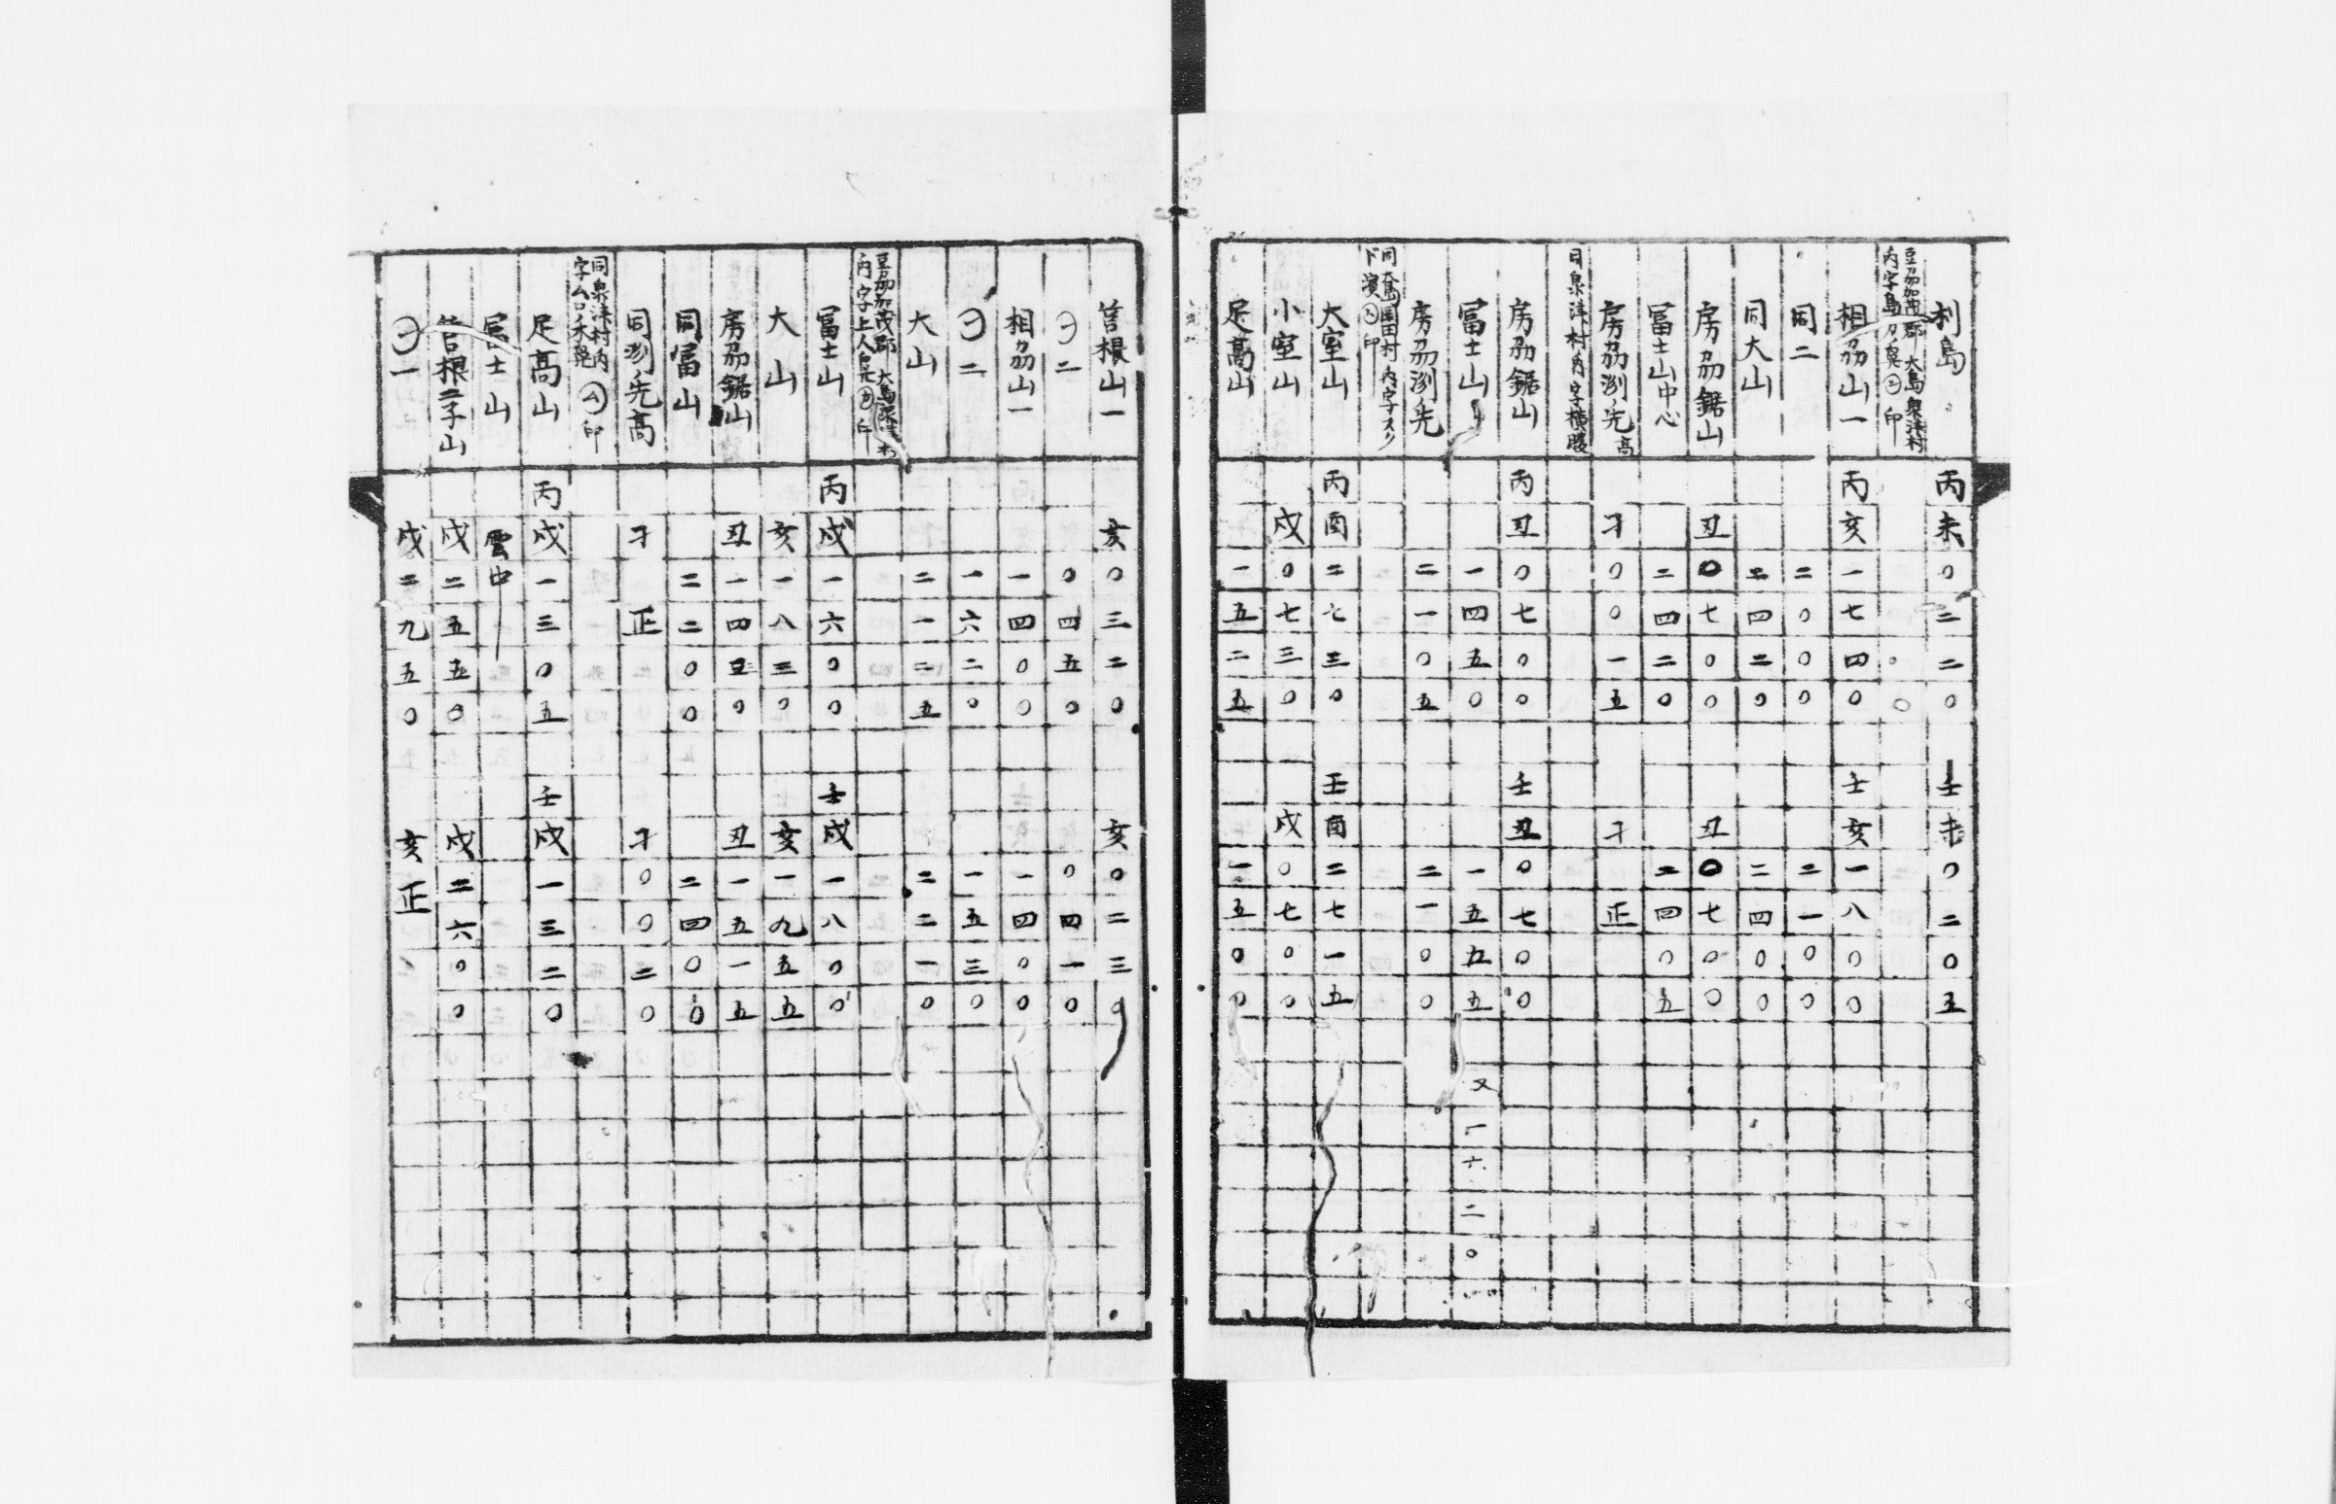 利島 丙未〇三二〇 壬未〇二〇五
豆刕加茂郡 大島泉津村
内字島ノ ㋥印
相刕山一 丙亥一七四〇 壬亥一八〇〇
同二 二〇〇〇 二一〇〇
同大山 二四二〇 二四〇〇
房刕鋸山 丑〇七〇〇 丑〇七〇〇
冨士山中心 二四二〇 二四〇五
房刕洌先高 子〇〇一五 子正
同泉津村内字横
房刕鋸山 丙丑〇七〇〇 壬丑〇七〇〇
冨士山 一四五〇 一五五五 又一六二〇
房刕洌先 二一〇五 二一〇〇
同大島岡田村内字
印
大室山 丙酉二七三〇 壬酉二七一五
小室山 戌〇七三〇 戌〇七〇〇
足髙山 一五二五 一五〇〇
筥根山一 亥〇三二〇 亥〇二三〇
二 〇四五〇 〇四一〇
相刕山一 一四〇〇 一四〇〇
二 一六二〇 一五三〇
大山 二一二五 二二一〇
豆刕加茂郡 大島泉津村
内字上人 印
冨士山 丙戌一六〇〇 壬戌一八〇〇
大山 亥一八三〇 亥一九五五
房刕鋸山 丑一四五〇 丑一五一五
同冨山 二二〇〇 二四〇〇
同洌先高 子正 子〇〇二〇
同泉津村内
印
足高山 丙戌一三〇五 壬戌一三二〇
冨士山 雲中
筥根二子山 戌二五五〇 戌二六〇〇
一 戌二九五〇 亥正